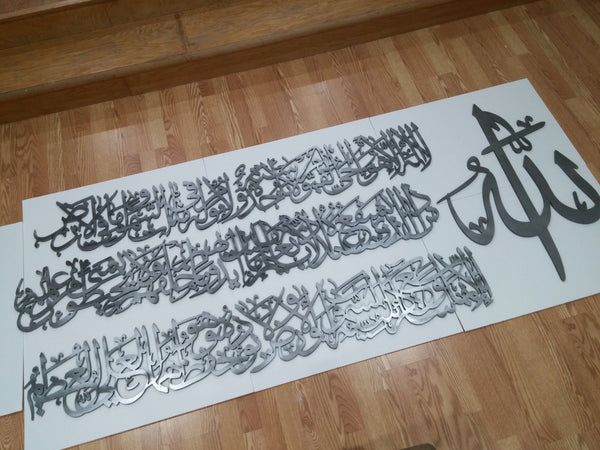 الله
الله لا إله إلا هو الحي القيوم لا تأخذه سنة ولا نوم له ما في السماوات وما في الأرض
من ذا الذي يشفع عنده إلا بإذنه يعلم ما بين أيديهم وما خلفهم ولا يحيطون بشيء من علمه
إلا بما شاء وسع كرسيه السماوات والأرض ولا يؤوده حفظهما وهو العلي العظيم